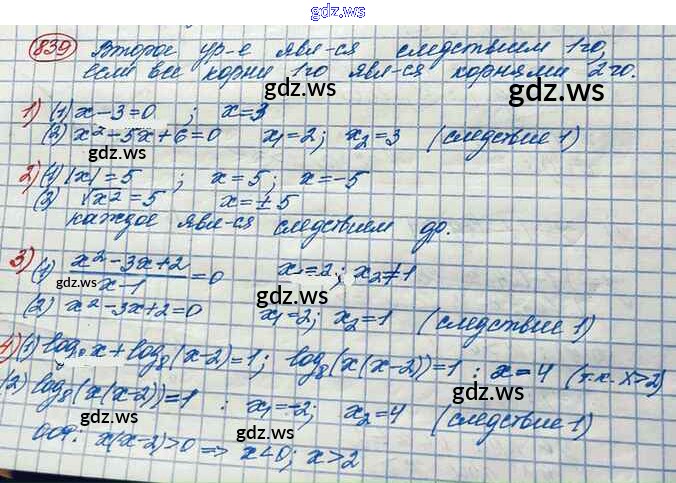 gdz.ws
839 Второе ур-е явл-ся следствием 1го,
если все корни 1го явл-ся корнями 2го.
gdz.ws
1) (1) x-3=0 ; x=3
(2) x²-5x+6=0 x₁=2; x₂=3 (следствие 1)
gdz.ws gdz.ws
2) (1) |x|=5 ; x=5; x=-5
(2) √x²=5 x=±5
каждое явл-ся следствием др.
3) (1) (x²-3x+2)/(x-1)=0 x₁=2; x₂≠1
gdz.ws gdz.ws
(2) x²-3x+2=0 x₁=2; x₂=1 (следствие 1)
4) (1) log₈x+log₈(x-2)=1; log₈(x(x-2))=1 : x=4 (т.к. x>2)
(2) log₈(x(x-2))=1 : x₁=-2; x₂=4 (следствие 1)
gdz.ws gdz.ws
ООФ: x(x-2)>0 => x<0; x>2
gdz.ws